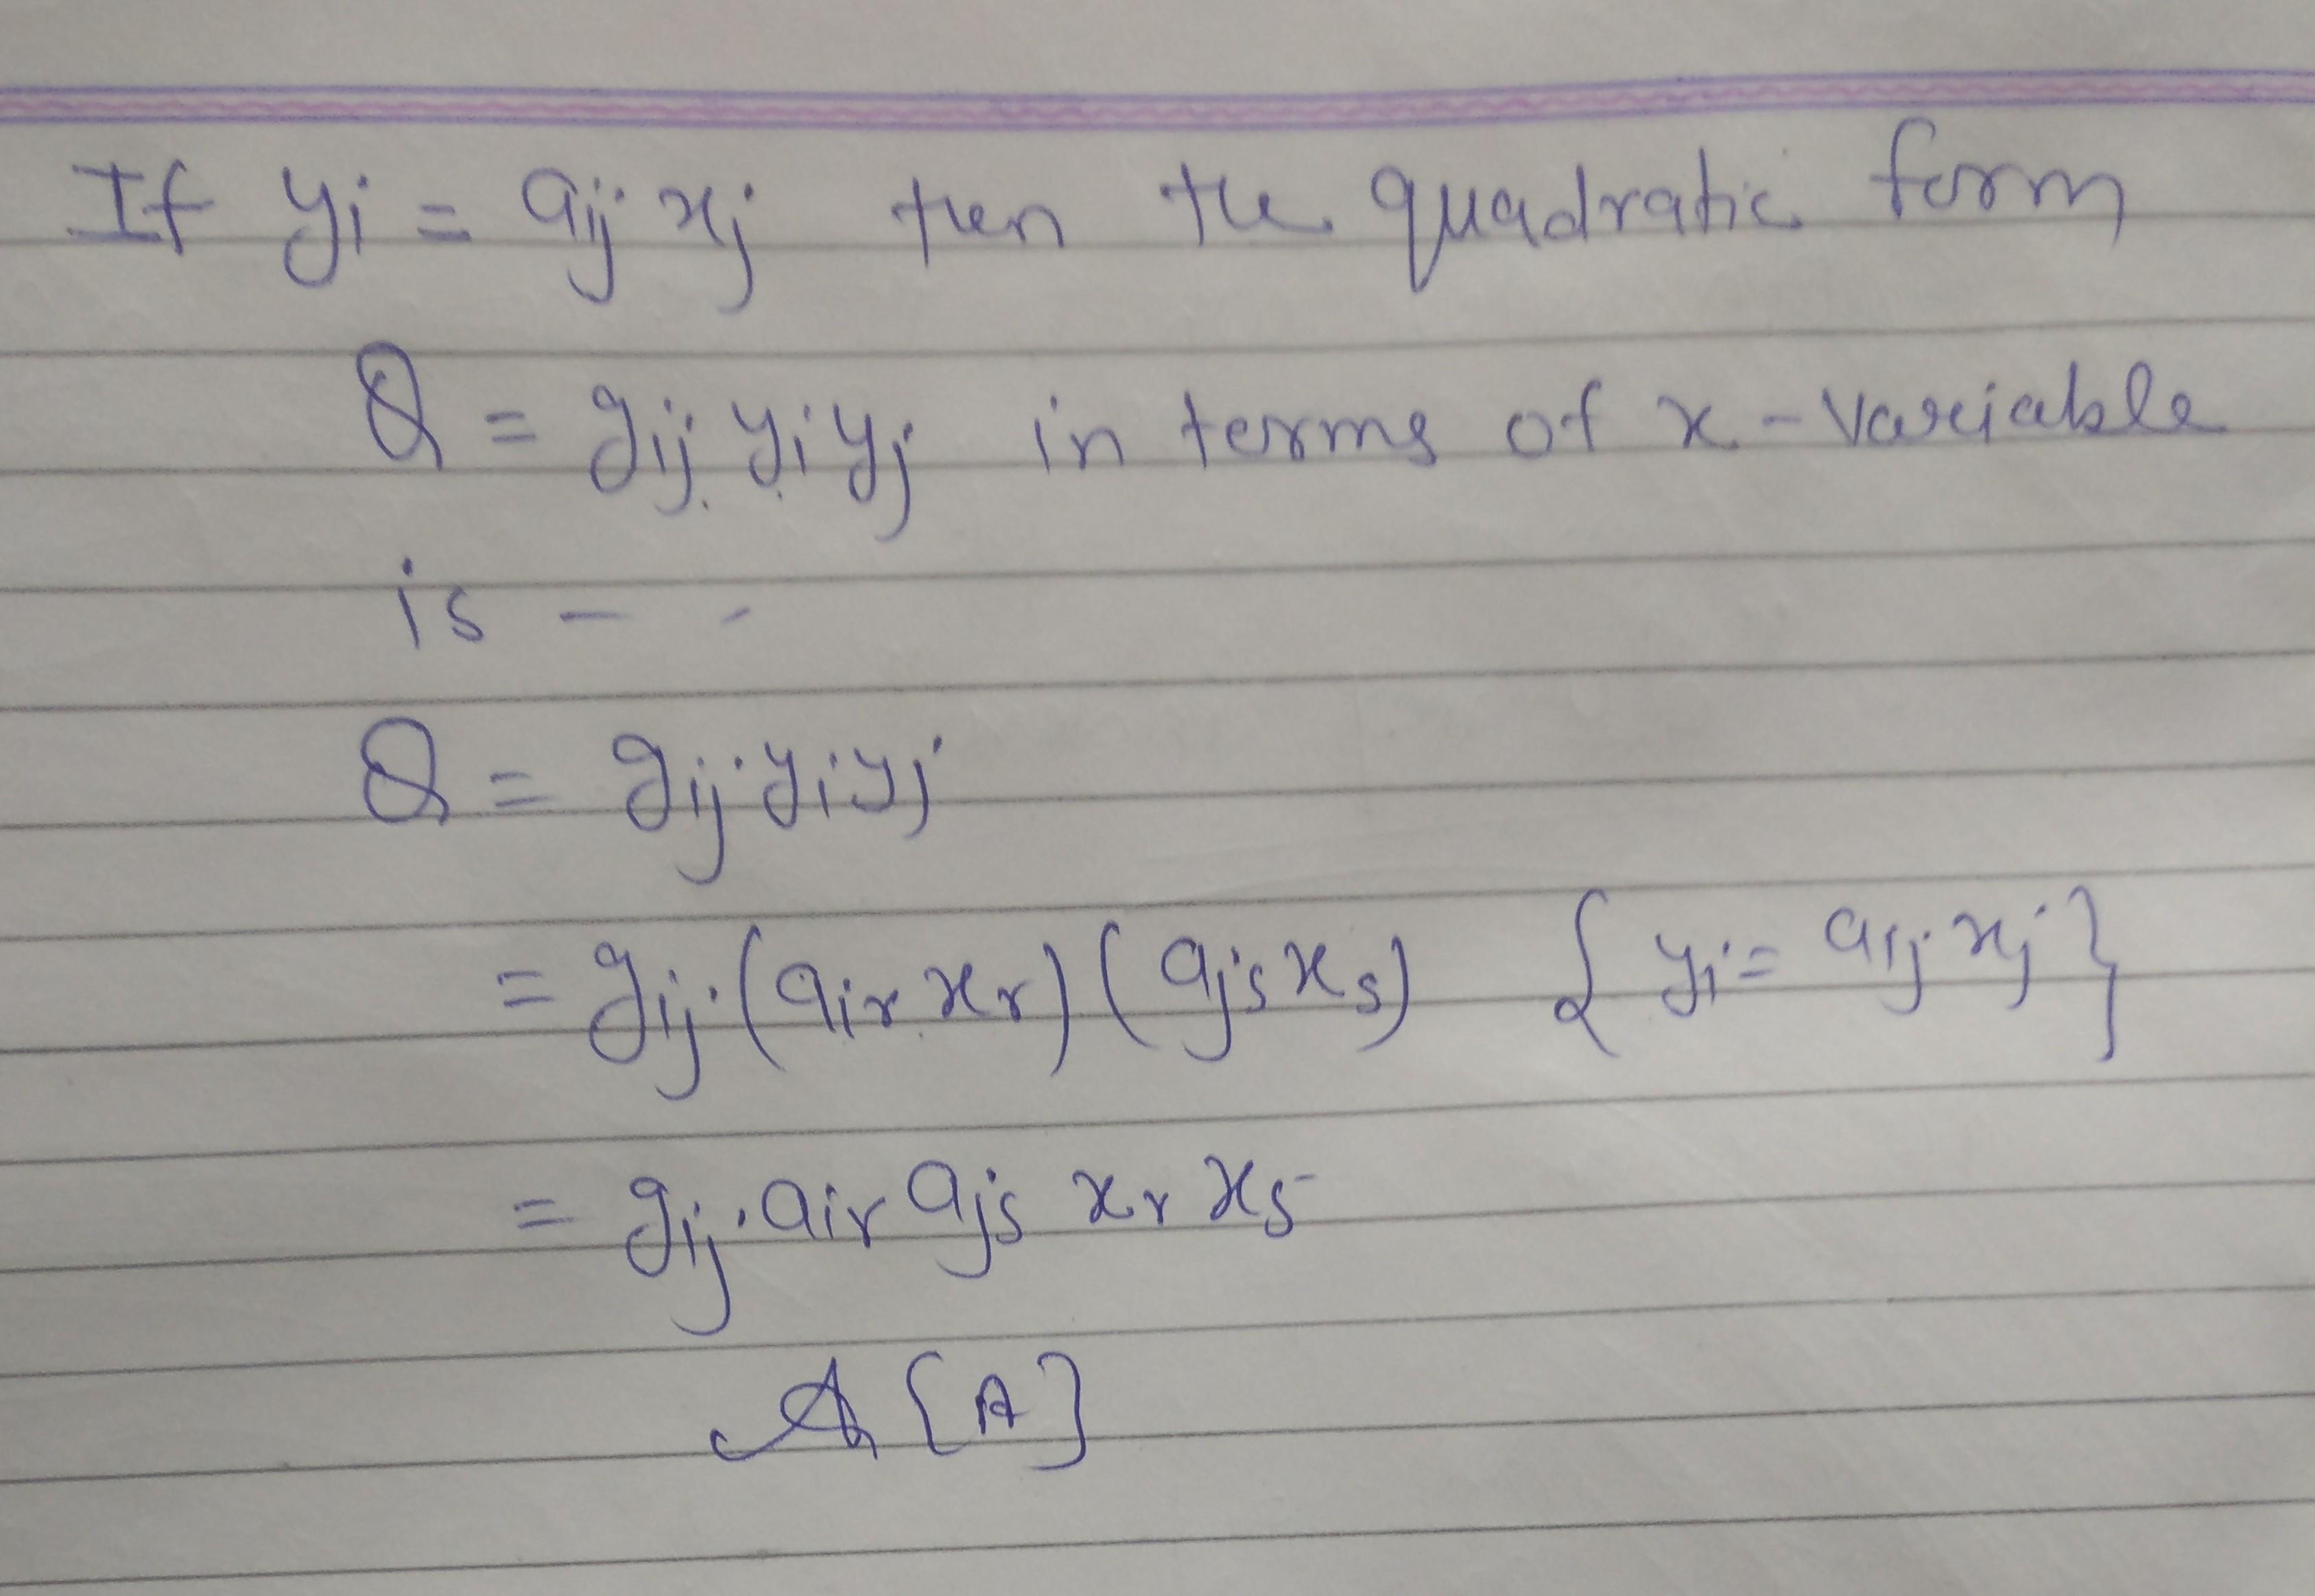 If yi = aij xj then the quadratic form
Q = gij yi yj in terms of x - variable
is - -
Q = gij yi yj
= gij (air xr) (ajs xs) { yi = aij xj }
= gij air ajs xr xs
[A]